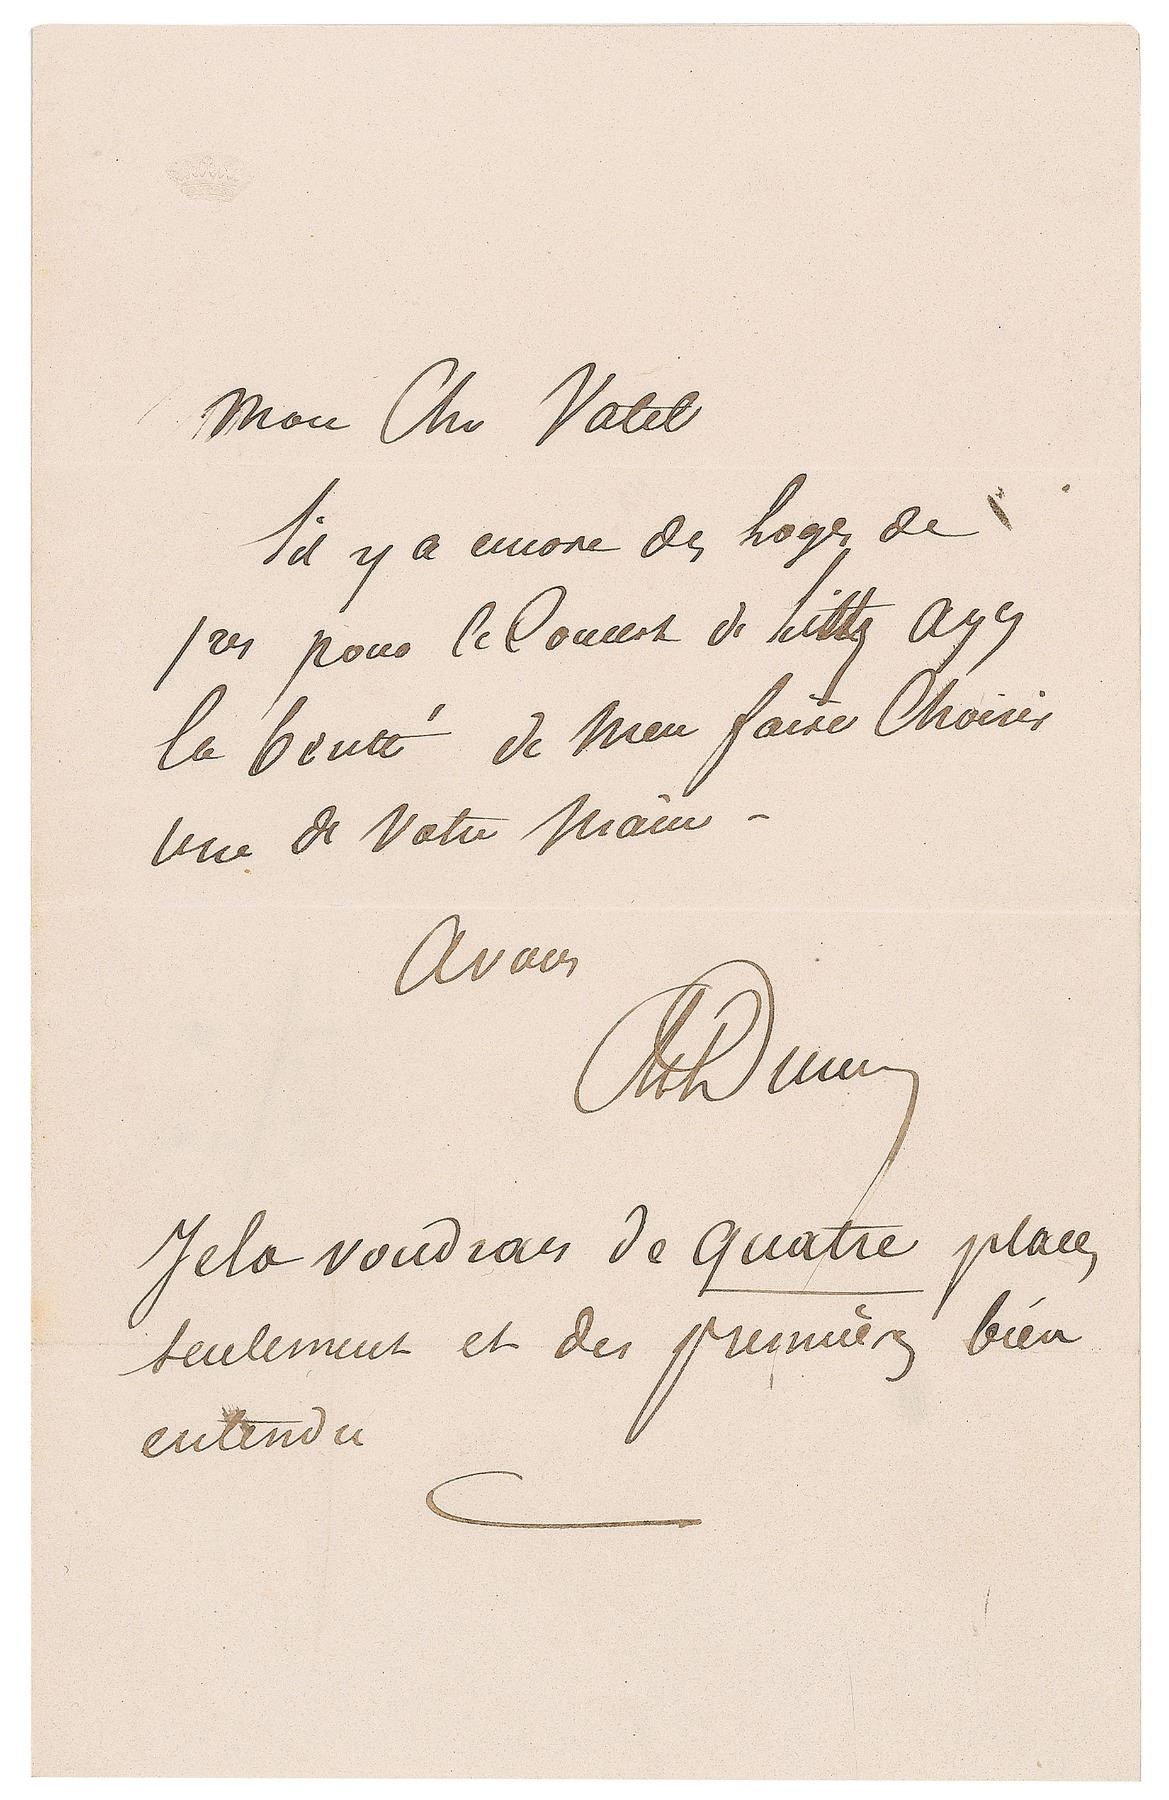 Mon Cher Vatel
S'il y a encore des loges de
1res pour le Concert de Listz ayez
la bonté de m'en faire choisir
une de votre main -
A vous
Alex Dumas
Je la voudrais de quatre places
seulement et des premières bien
entendu